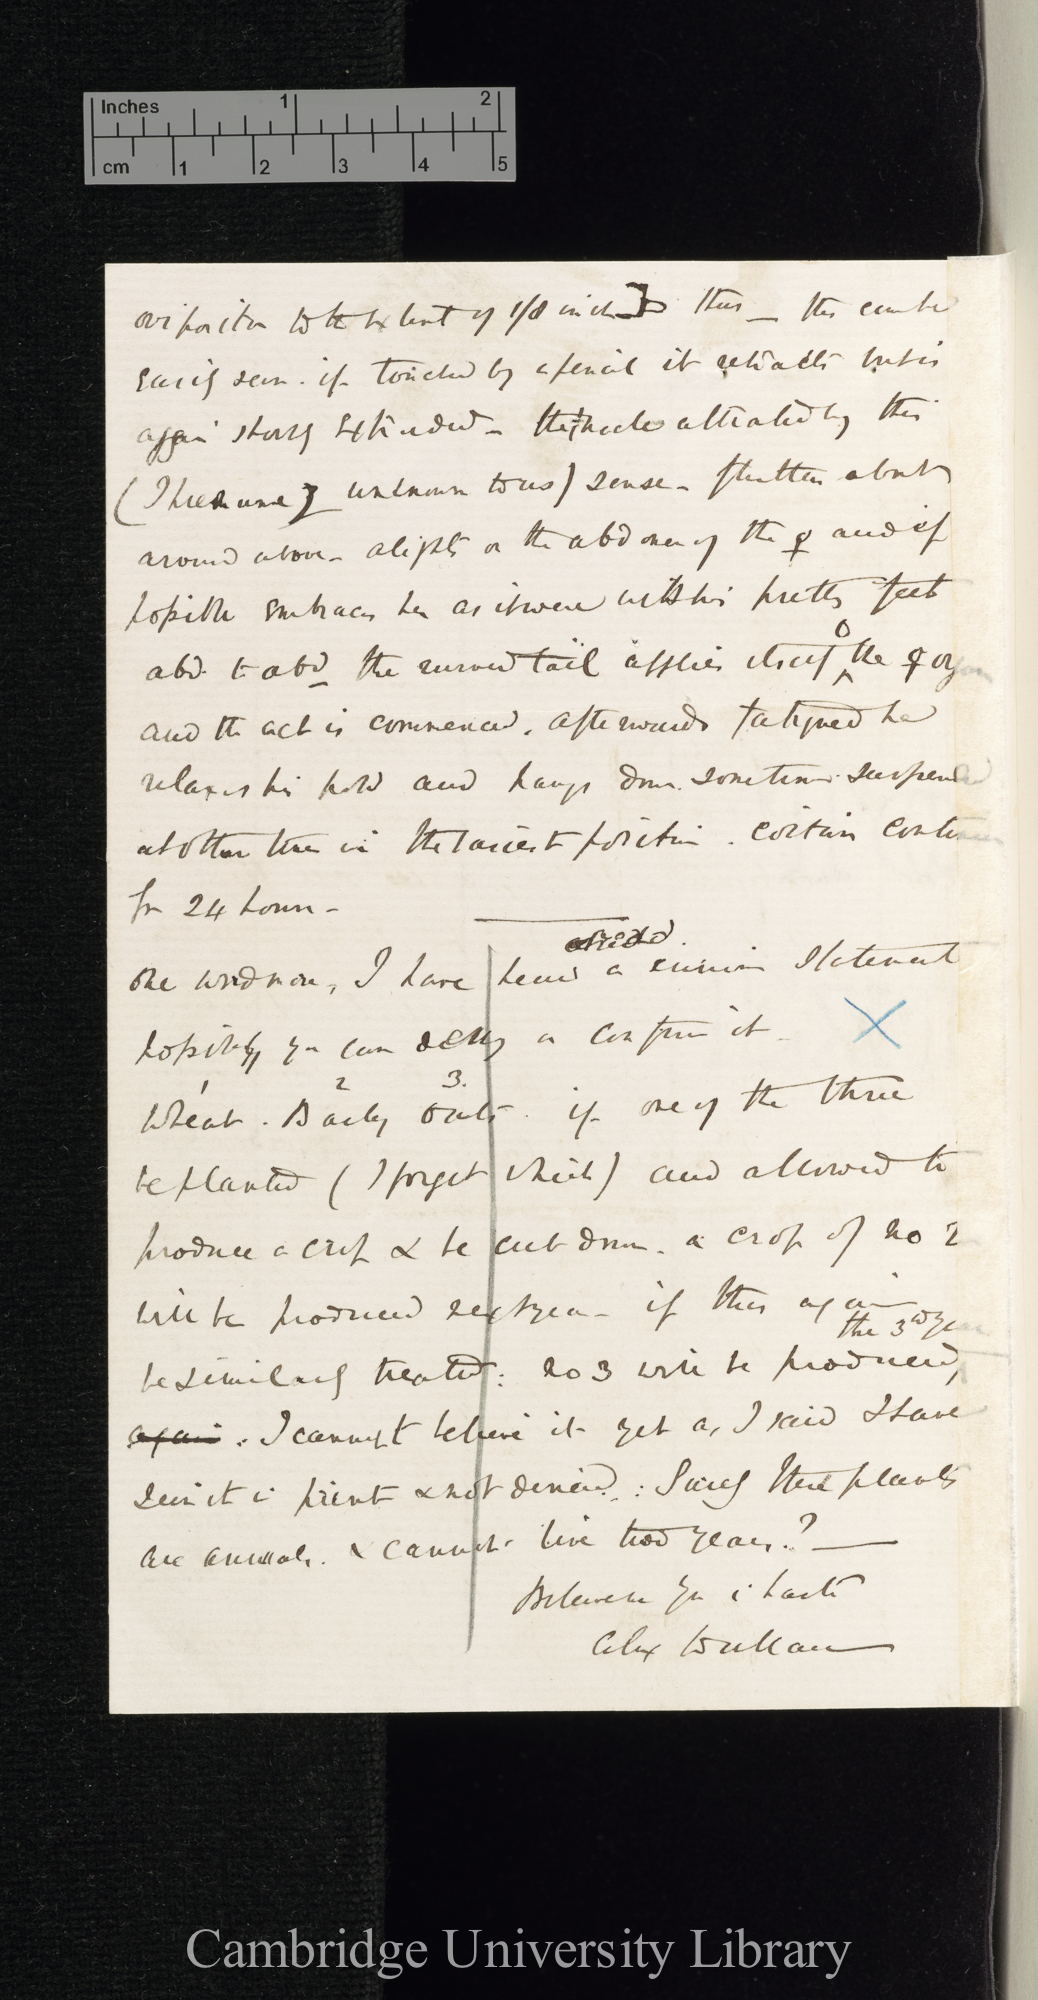 Inches 1 2
cm 1 2 3 4 5
ovipositor to the extent of 1/8 inch thus — this can be
easily seen. if touched by a pencil it retracts but is
again slowly extended — the male attracted by this
(I presume unknown to us) sense — flutters about
around above — alights on the abdomen of the ♀ and if
possible embraces her as it were with his pretty feet
abd. to abd the curved tail applies itself
o
the ♀ organ
and the act is commenced. afterwards fatigued he
relaxes his hold and hangs down sometimes suspended
at other times in the laziest position. coition continues
for 24 hours —
one word more, I have heard a curious statement
possibly you can deny or confirm it —
1 2 3.
Wheat. Barley Oats. if one of the three
be planted (I forget which) and allowed to
produce a crop & be cut down. a crop of no 2
will be produced next year — if this again
the 3rd year
be similarly treated: no 3 will be produced,
again. I cannot believe it yet as I said I have
seen it in print & not denied: Surely these plants
are annuals. & cannot live two years.? —
Believe me yrs in haste
Alex Wallace
Cambridge University Library